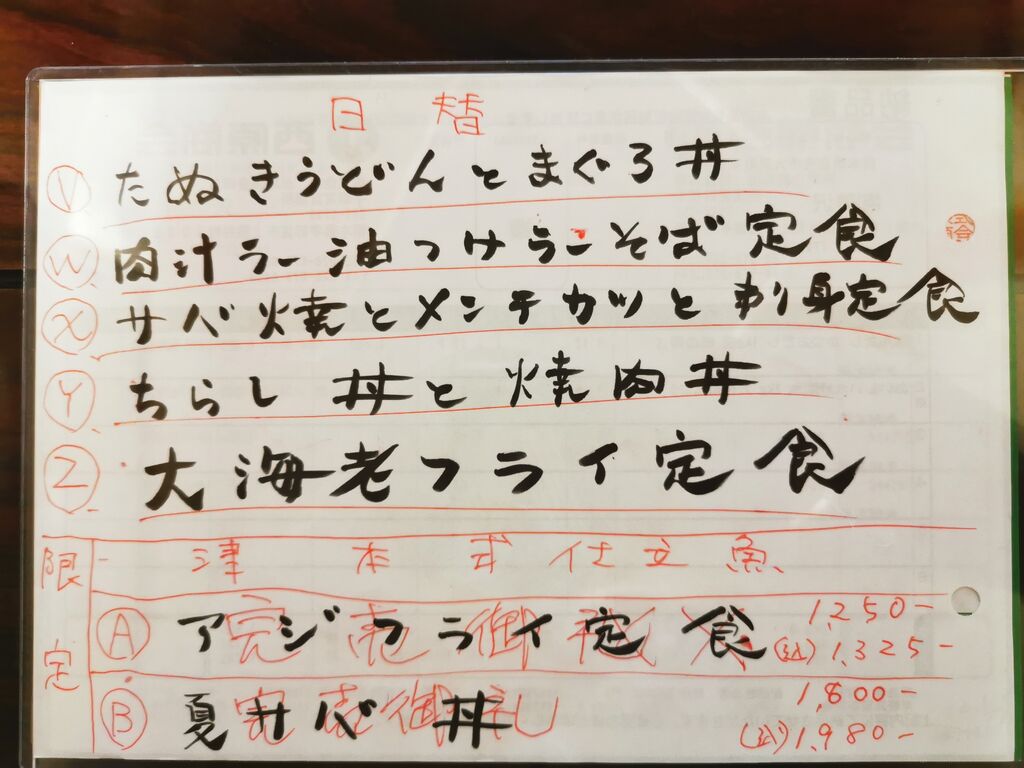 日替
V たぬきうどんとまぐろ丼
W 肉汁ラー油つけ そば定食
X サバ焼とメンチカツと刺身定食
Y ちらし丼と焼肉丼
Z 大海老フライ定食
限定
津本式仕立魚
A アジフライ定食 1,250-
完売御礼
(込)1,325-
B 夏サバ丼 1,800-
完売御礼
(込)1,980-